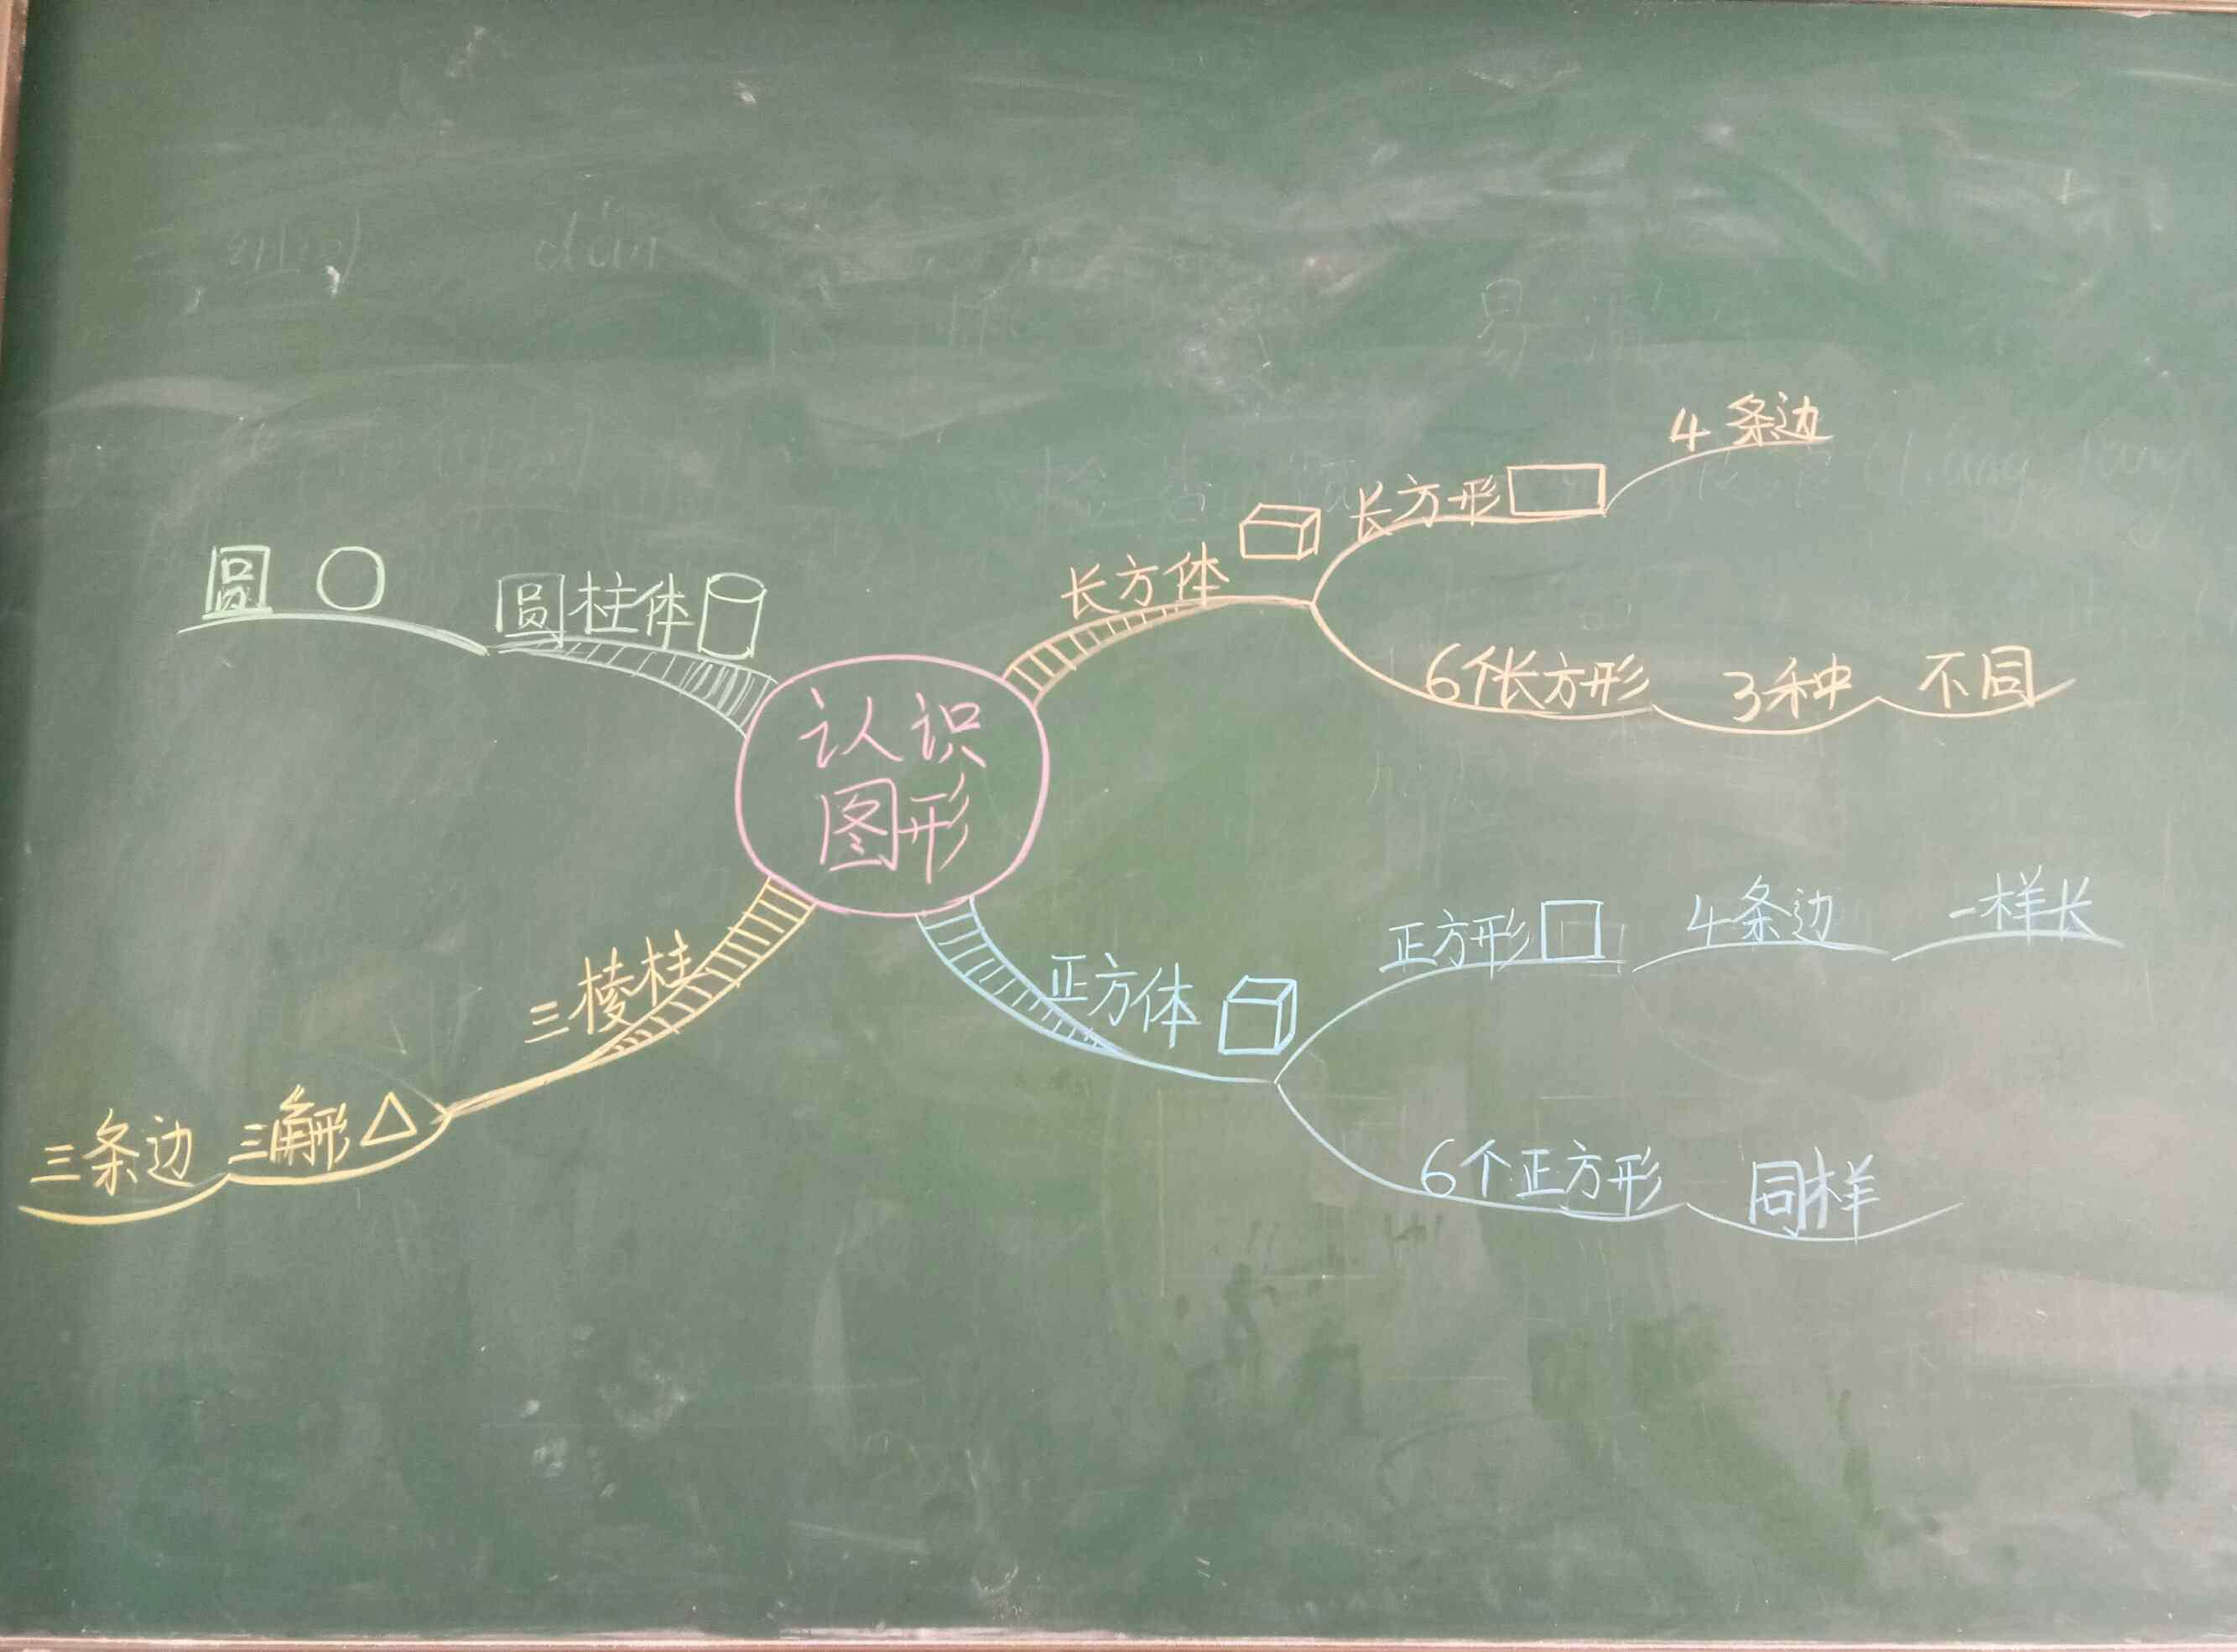 认识
图形
长方体
长方形
4条边
6个长方形 3种 不同
正方体
正方形 4条边 一样长
6个正方形 同样
三棱柱
三角形
三条边
圆柱体
圆
dan